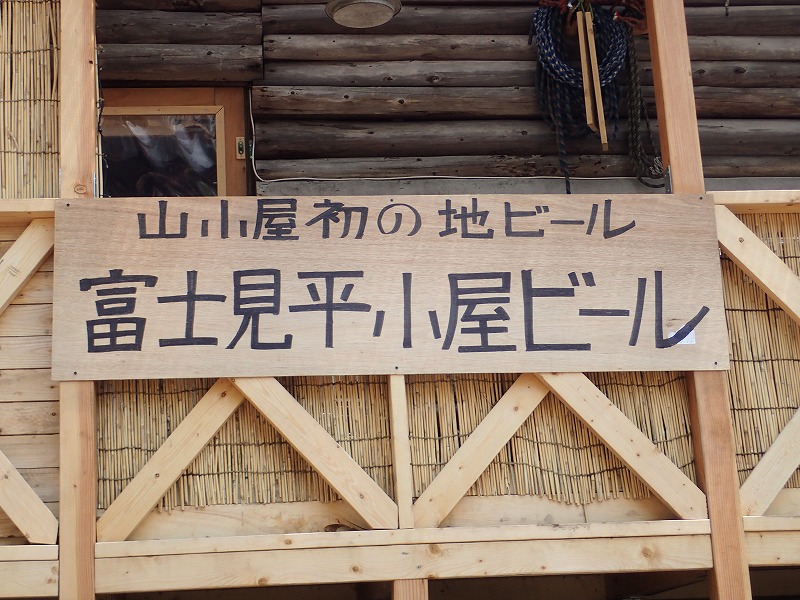 山小屋初の地ビール
富士見平小屋ビール